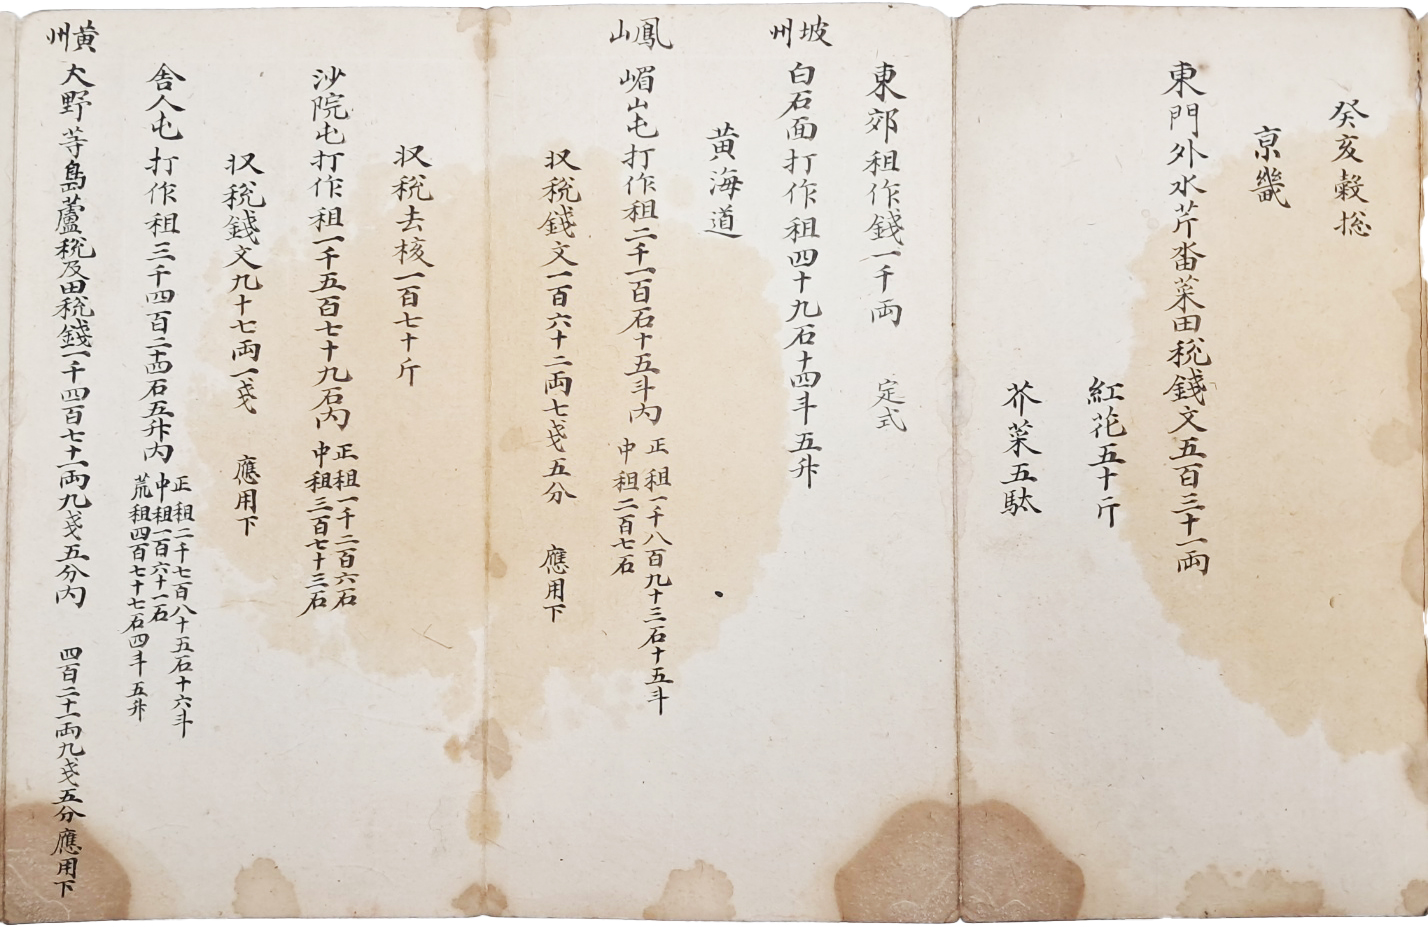 癸亥穀摠
京畿
東門外水芹畓菜田税錢文五百三十一両
紅花五十斤
芥菜五駄
東郊租作錢一千両 定式
坡州 白石面打作租四十九石十四斗五升
黄海道
鳳山 嵋山屯打作租二千一百石十五斗内 正租一千八百九十三石十五斗
中租二百七石
収税錢文一百六十二両七戔五分 應用下
収税去核一百七十斤
沙院屯打作租一千五百七十九石内 正租一千二百六石
中租三百七十三石
収税錢文九十七両一戔 應用下
舎人屯打作租三千四百二十四石五升内 正租二千七百八十五石十六斗
中租一百六十一石
荒租四百七十七石四斗五升
黄州 大野等島蘆税及田税錢一千四百七十一両九戔五分内 四百二十一両九戔五分應用下